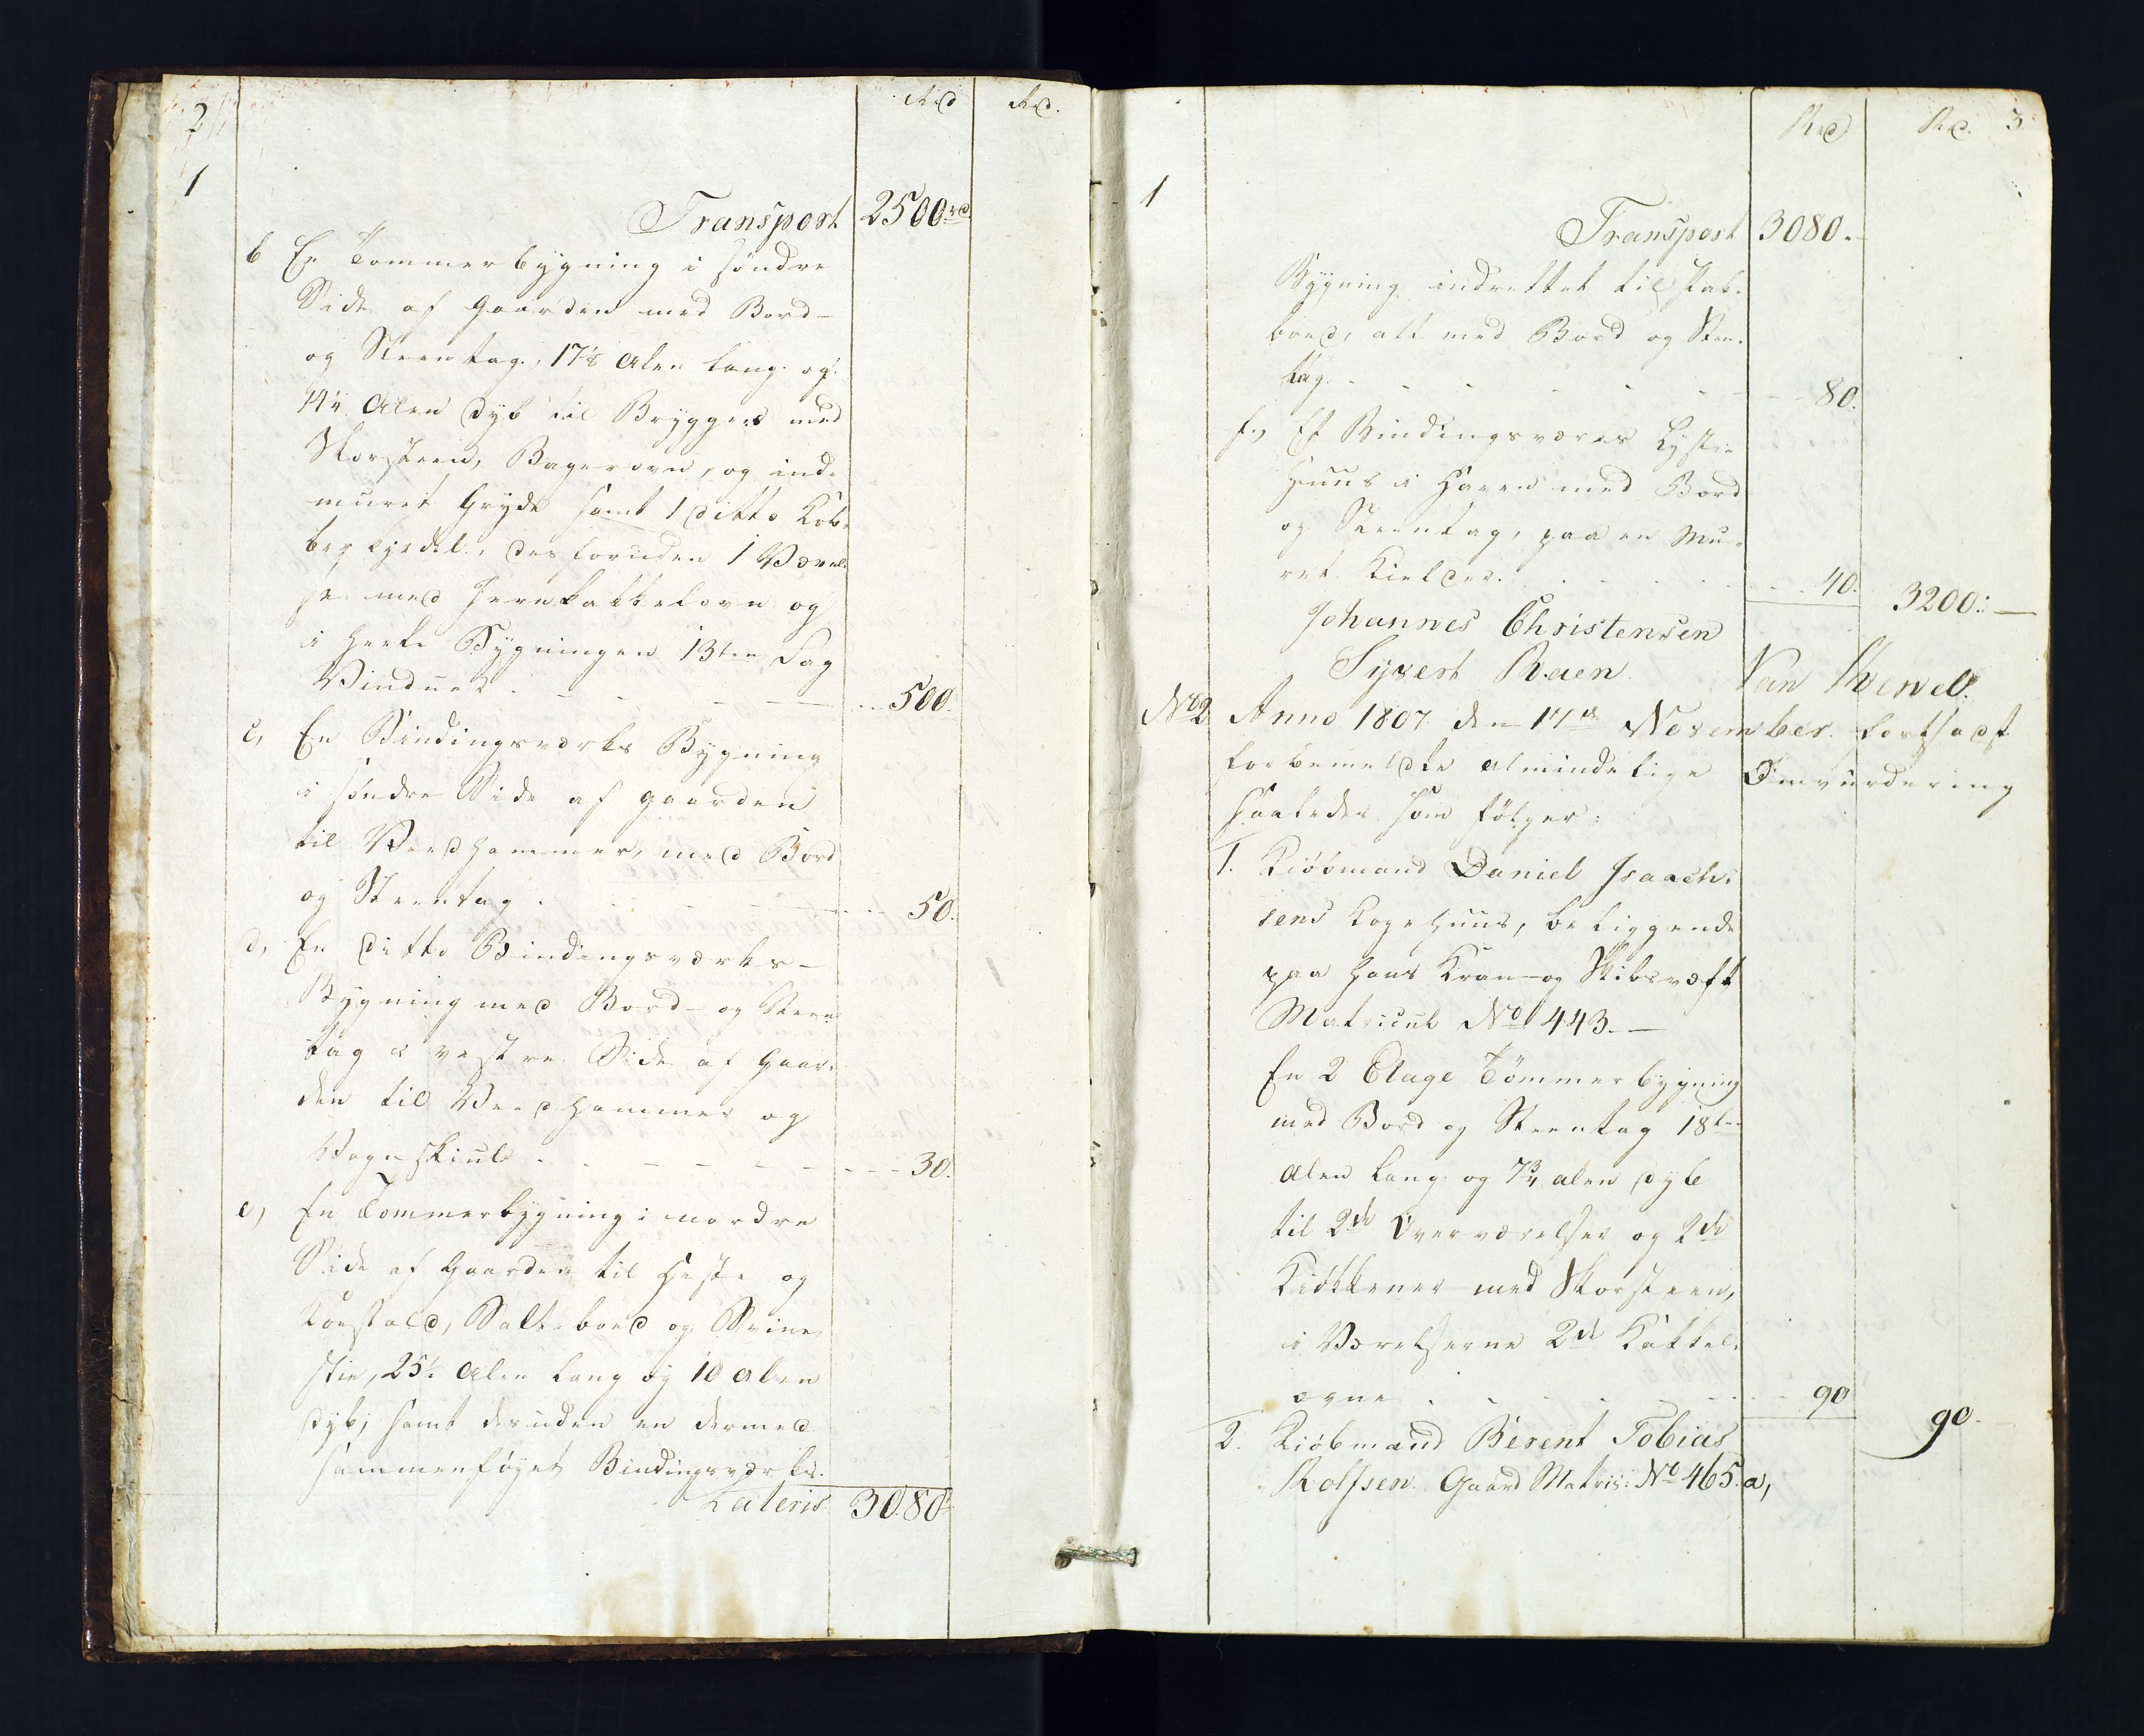 2
Rd
Rd.
1
Transport 2500 rd
b En Tømmerbygning i søndre
Side af Gaarden med Bord-
og Steentag, 17½ Alen lang og
14¼ Alen dyb til Bryggers med
Skorsteen, Bagerovn, og ind-
muret Gryde samt 1 ditto Kob-
ber Kjedel, desforuden 1 Værel-
se med Jernkakkelovn og
i heele Bygningen 13ten Fag
Vinduer . - - - 500.
c, En Bindingsværks Bygning
i søndre Side af gaarden
til Veedhammer, med Bord
og Steentag . - - - 50.
d, En ditto Bindingsværks-
Bygning med Bord- og Steen
tag i vestre Side af Gaar-
den til Veedhammer og
Vognskiul . - - - 30.
e, En Tømmerbygning i nordre
Side af Gaarden til Heste og
Koestald, Salteboed og Sviine
stie, 25½ Alen lang og 10 alen
dyb; samt desuden en dermed
sammenføyet Bindingsværks-
Lateris 3080.
Rd
Rd. 3
1
Transport 3080.
Bygning indrettet til
boed, alt med Bord og Steen-
tag. - - - 80.
f, Et Bindingsværks Lyst-
Huus i Haven med Bord
og Steentag, paa en Mu-
ret Kielder. - - - 40. 3200:—
Johannes Christensen
Syvert Raen. Van Kervel.
No 2 Anno 1807 den 17de November fortsadst
forbemeldte almindelige Omvurdering
saaledes som følger:
1. Kiøbmand Daniel Isaach-
sens Kogehuus, beliggende
paa hans Kran- og Skibsværft
Matricul No 443.—
En 2 Etage Tømmerbygning
med Bord og Steentag 18ten
Alen lang og 7¾ alen dyb
til 2de Overværelser og 2de
Kiøkkener med Skorsteen,
i Værelserne 2de Kakkel-
ovne . - - - 90 90.
2. Kiøbmand Berent Tobias
Rolfsen Gaard Matric: No 465.a,